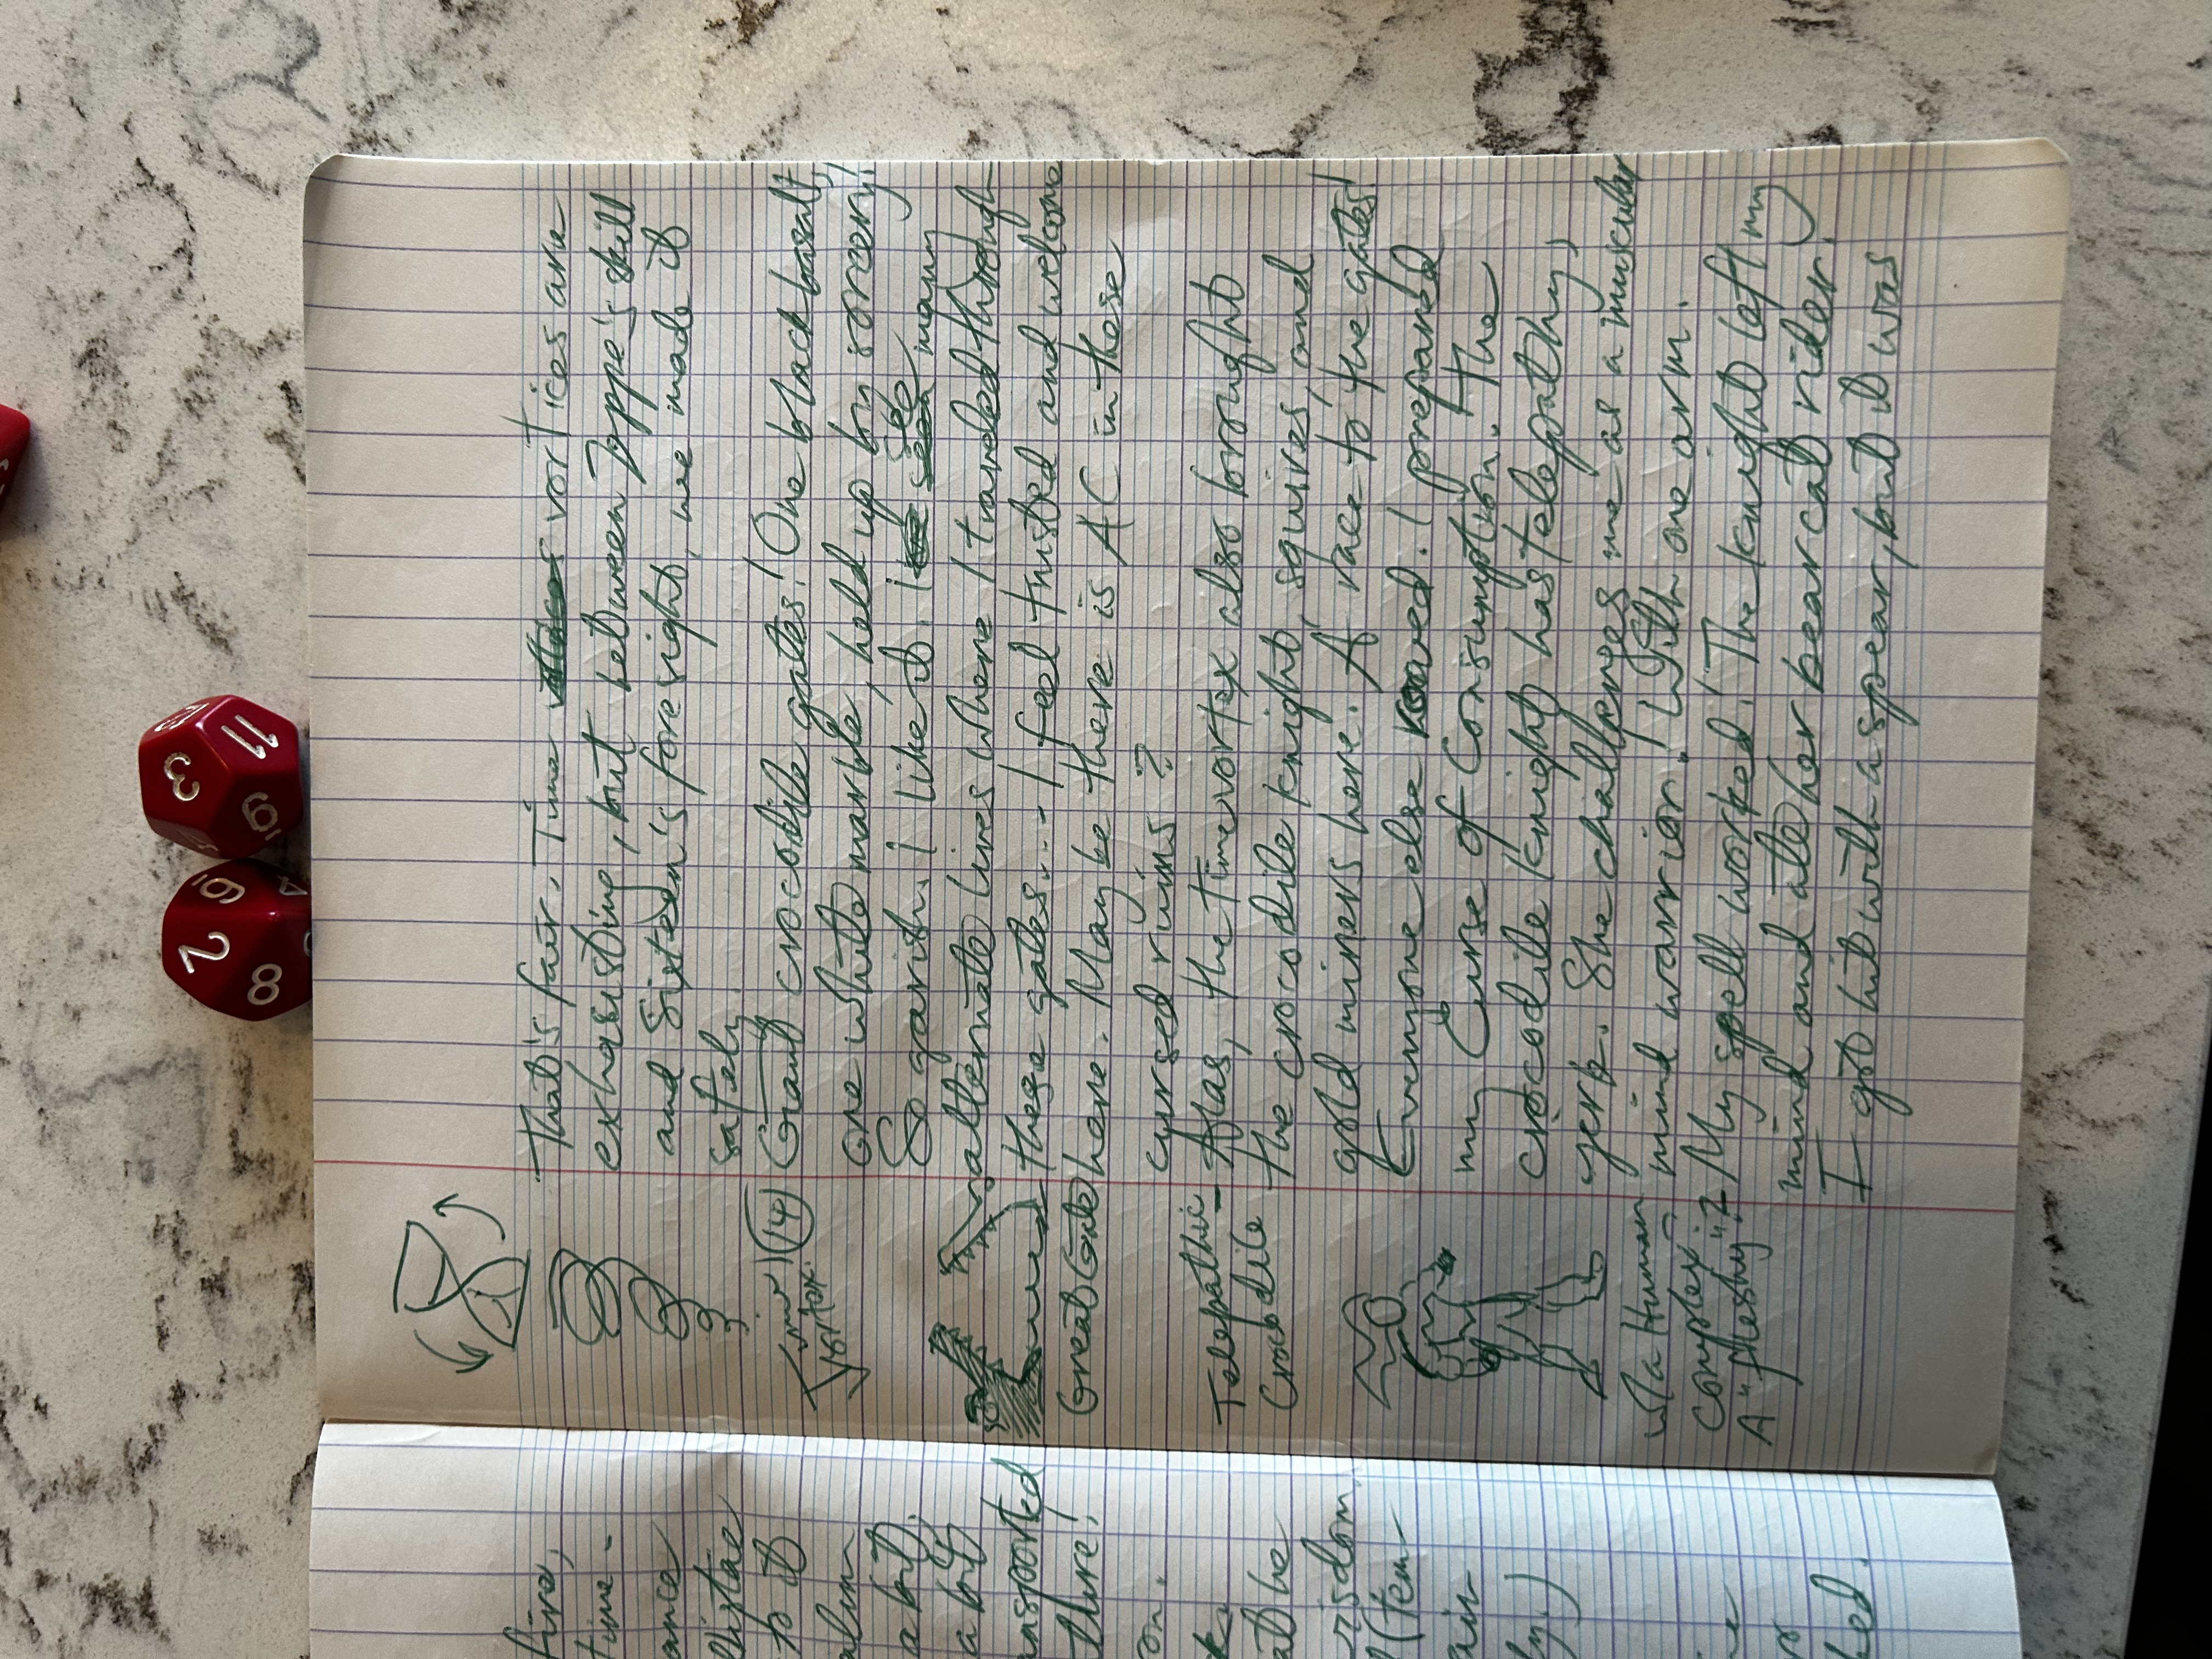 That's fair. Time vortices are
exhausting, but between Joppe's skill
and Sixteen's foresight, we made it
safely.
Time Vortex
14
Giant crocodile gates! One black basalt,
one white marble, held up by sorcery!
So garish. I like it. I see many
alternate lives where I traveled through
these gates... I feel trusted and welcome
here. Maybe there is A C in these
cursed ruins?
Great Gate
Telepathic
Crocodile
Alas, the time vortex also brought
the crocodile knight, squires, and
gold miners here. A race to the gates!
Everyone else roared. I prepared
my Curse of Consumption. The
crocodile knight has telepathy,
yerk. She challenges me as a muscular
mind warrior. With one arm.
w/a Human
complex?
A "fleshy".
My spell worked! The knight left my
mind and ate her bearcat rider!
I got hit with a spear, but it was
fire,
time-
ance
distae
to it
alim
a bit.
a bit
ansported
there!
on.
at he
isdom
(tem
air
ly.)
ne
or
hed.
2
8
3
11